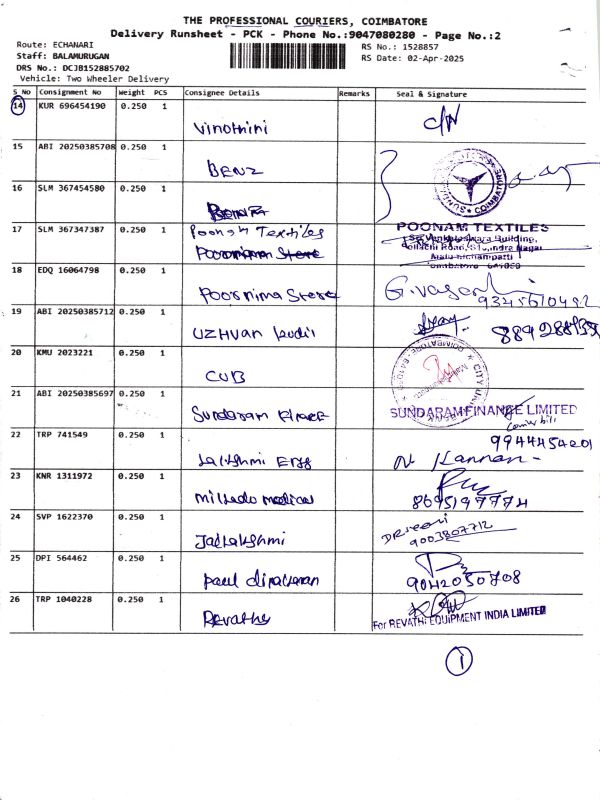 THE PROFESSIONAL COURIERS, COIMBATORE
Delivery Runsheet - PCK - Phone No.:9047080280 - Page No.:2
Route: ECHANARI
RS No.: 1528857
Staff: BALAMURUGAN
RS Date: 02-Apr-2025
DRS No.: DCJB152885702
Vehicle: Two Wheeler Delivery
S_No Consignment No Weight PCS Consignee Details Remarks Seal & Signature
14 KUR 696454190 0.250 1
Vinothini
15 ABI 20250385708 0.250 1
BENZ
COIMBATORE
16 SLM 367454580 0.250 1
17 SLM 367347387 0.250 1 Poonam Textiles POONAM TEXTILES
Poornima Store
18 EDQ 16064798 0.250 1
Poornima Store G.vasan
9345610492
19 ABI 20250385712 0.250 1
UZHVAN
20 KMU 2023221 0.250 1
CUB
21 ABI 20250385697 0.250 1
Sundaram SUNDARAM FINANCE LIMITED
22 TRP 741549 0.250 1 9944454201
Lakshmi Engg N. Kannan
23 KNR 1311972 0.250 1
medical 8695197774
24 SVP 1622370 0.250 1
Jailakshmi 9003807712
25 DPI 564462 0.250 1
Paul 9042050708
26 TRP 1040228 0.250 1
Revathi For REVATHI EQUIPMENT INDIA LIMITED
1